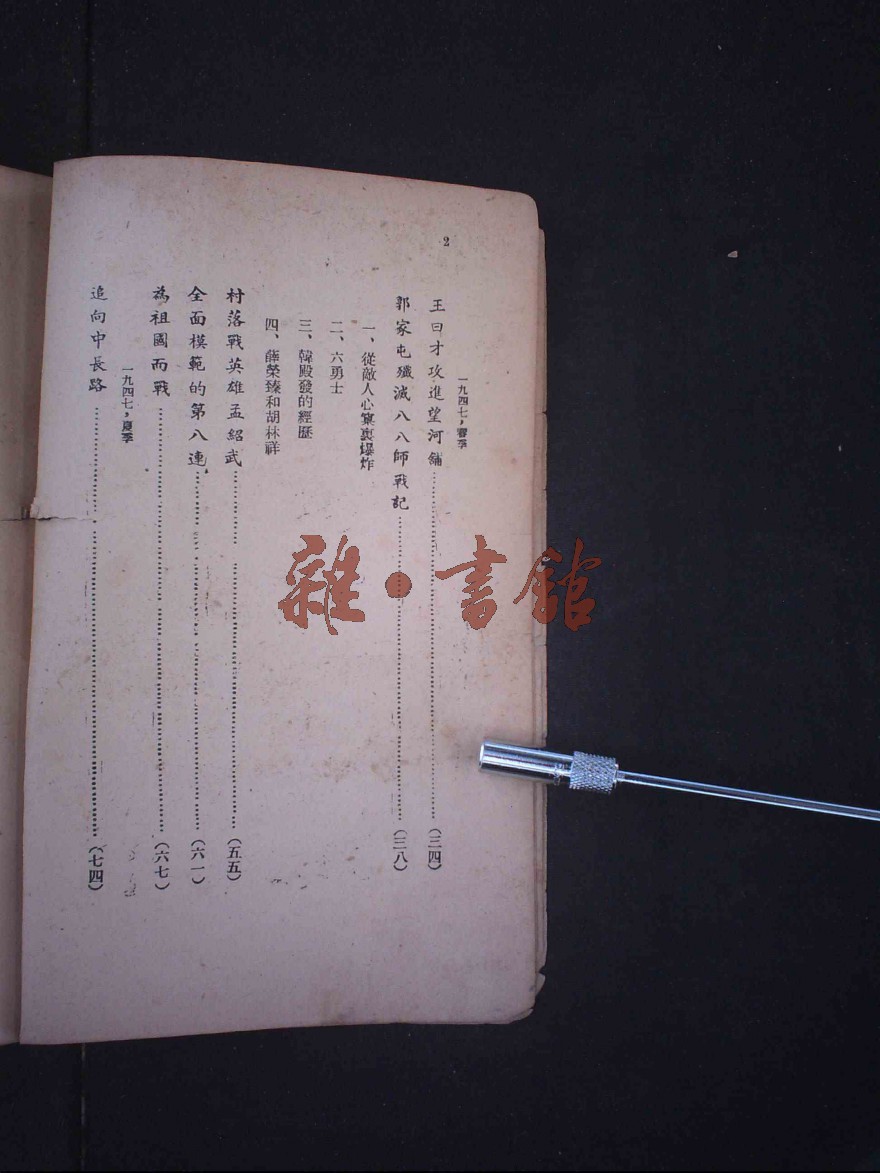 2
一九四七，春季
王曰才攻進望河鋪……(三四)
郭家屯殲滅八八師戰記……(三八)
一、從敵人心窩裏爆炸
二、六勇士
三、韓殿發的經歷
四、薛榮臻和胡林祥
村落戰英雄孟紹武……(五五)
全面模範的第八連……(六一)
為祖國而戰……(六七)
一九四七，夏季
追向中長路……(七四)
雜·書館